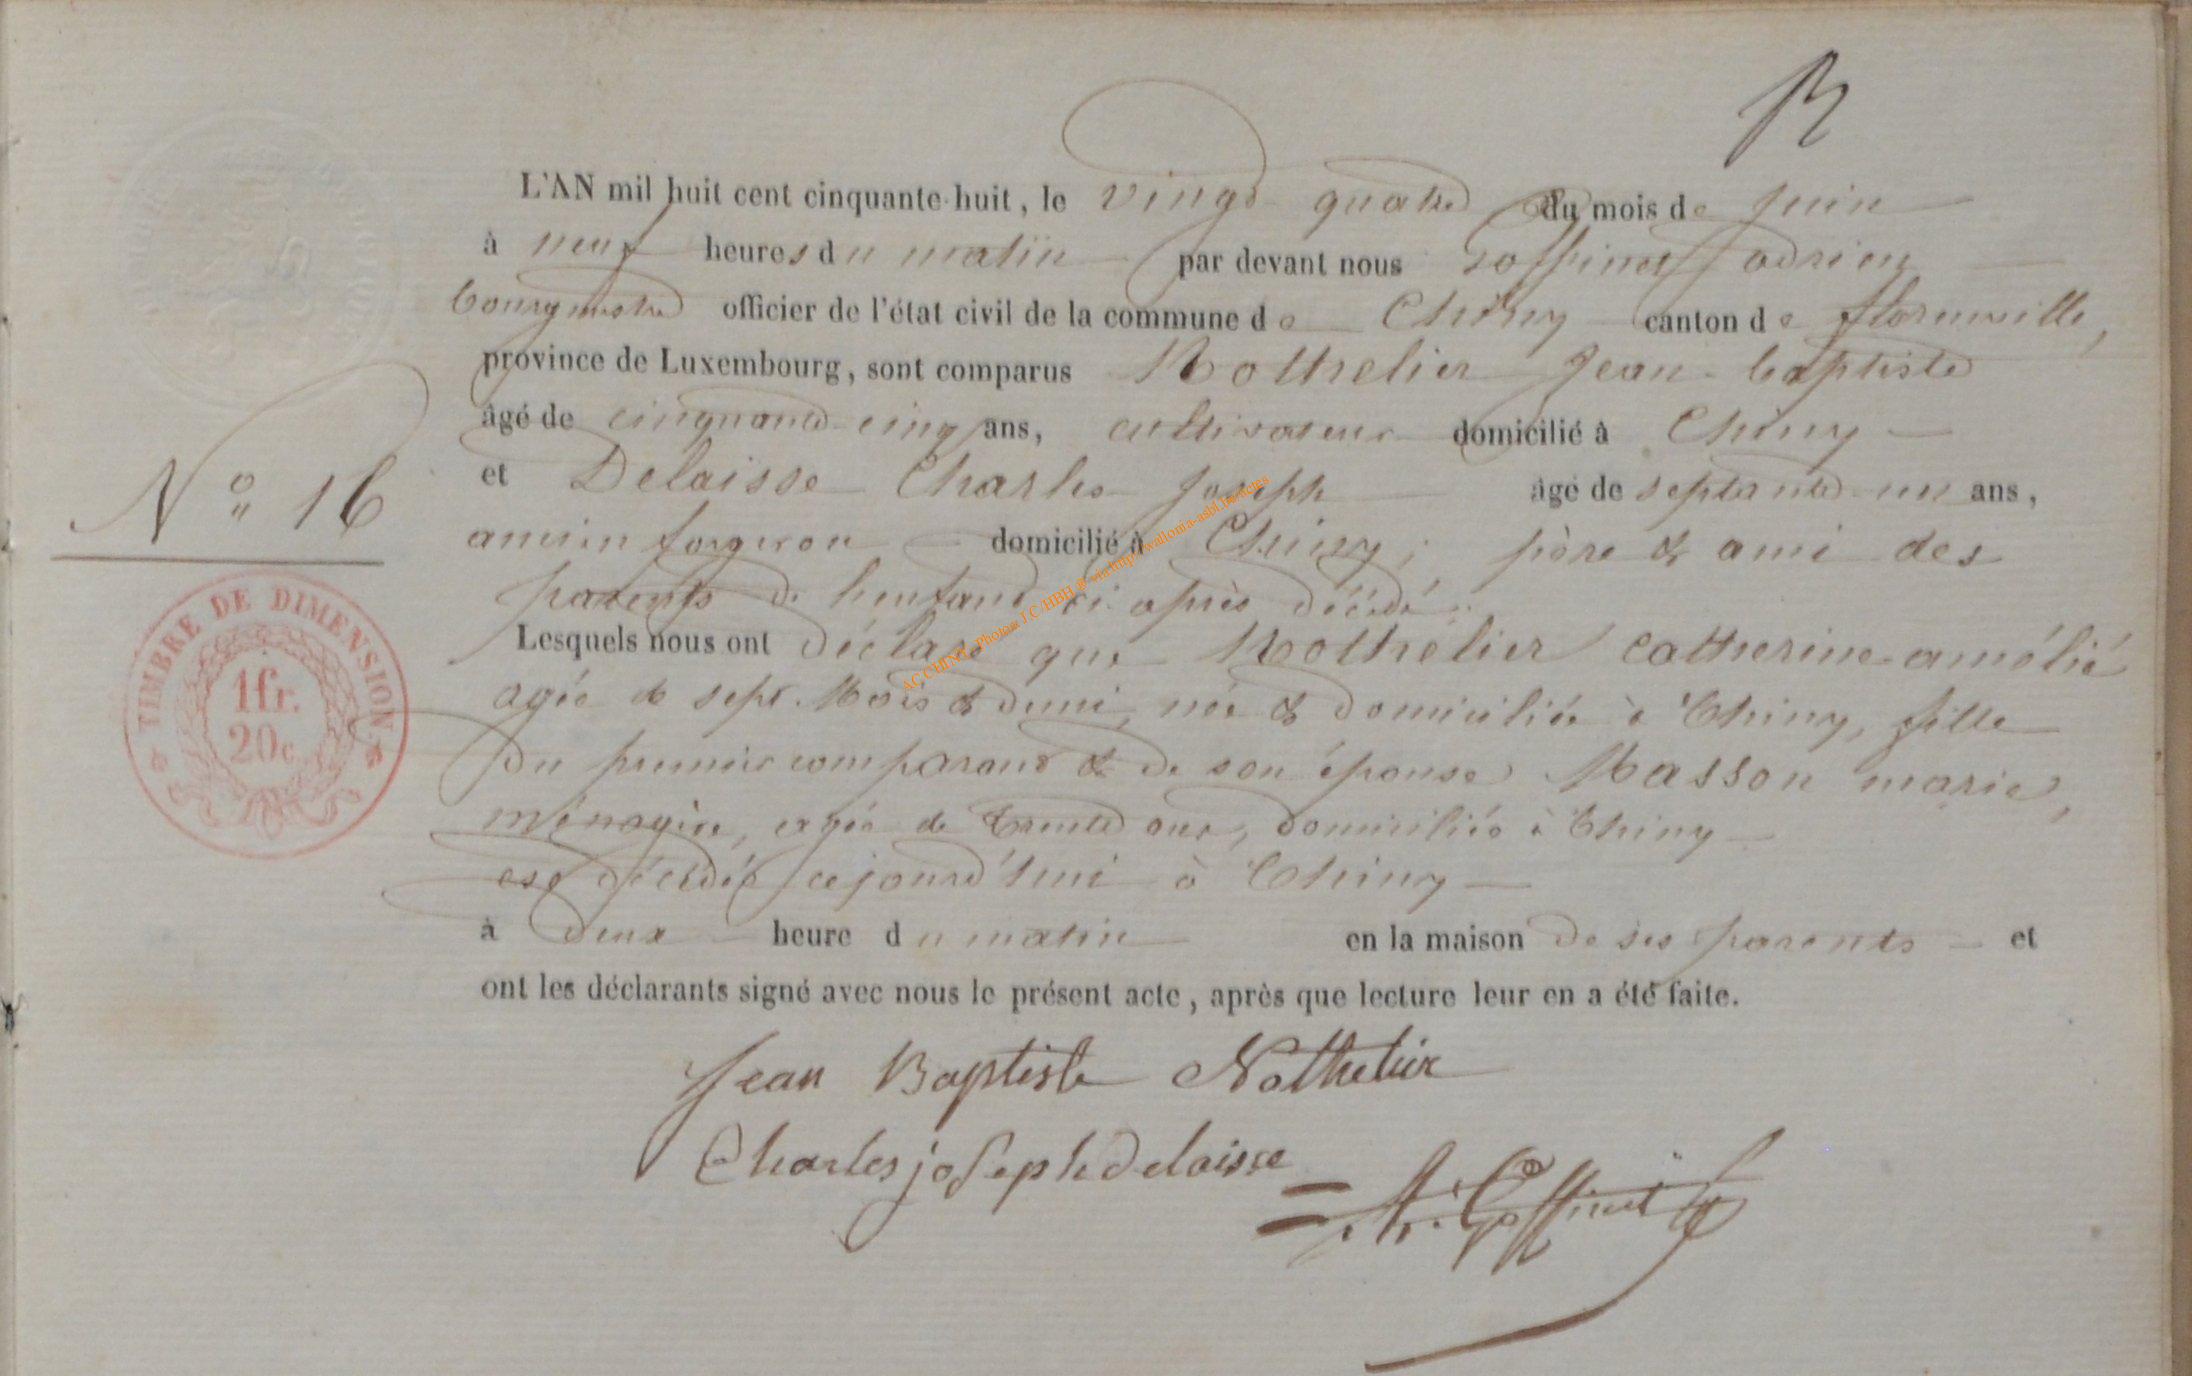 L'AN mil huit cent cinquante-huit, le vingt quatre du mois de juin
à neuf heures du matin par devant nous Goffinet adrien
bourgmestre officier de l'état civil de la commune de Chiny canton de florenville,
province de Luxembourg, sont comparus Nothelier Jean-baptiste
âgé de cinquante-cinq ans, cultivateur domicilié à Chiny
et Delaisse Charles Joseph âgé de septante-un ans,
ancien forgeron domicilié à Chiny, père & ami des
parents de l'enfant ci après décédé:
Lesquels nous ont déclaré que Nothelier catherine-amélié
agée de sept Mois & demi, née & domiciliée à Chiny, fille
N° 16
TIMBRE DE DIMENSION
1fr.
20c
du premier comparant & de son épouse Masson marie,
ménagère, agée de trente ans, domiciliée à Chiny
est décédée cejourd'hui à Chiny
à deux heure du matin en la maison de ses parents et
ont les déclarants signé avec nous le présent acte, après que lecture leur en a été faite.
Jean Baptiste Nothelier
Charles joseph Delaisse
A. Goffinet